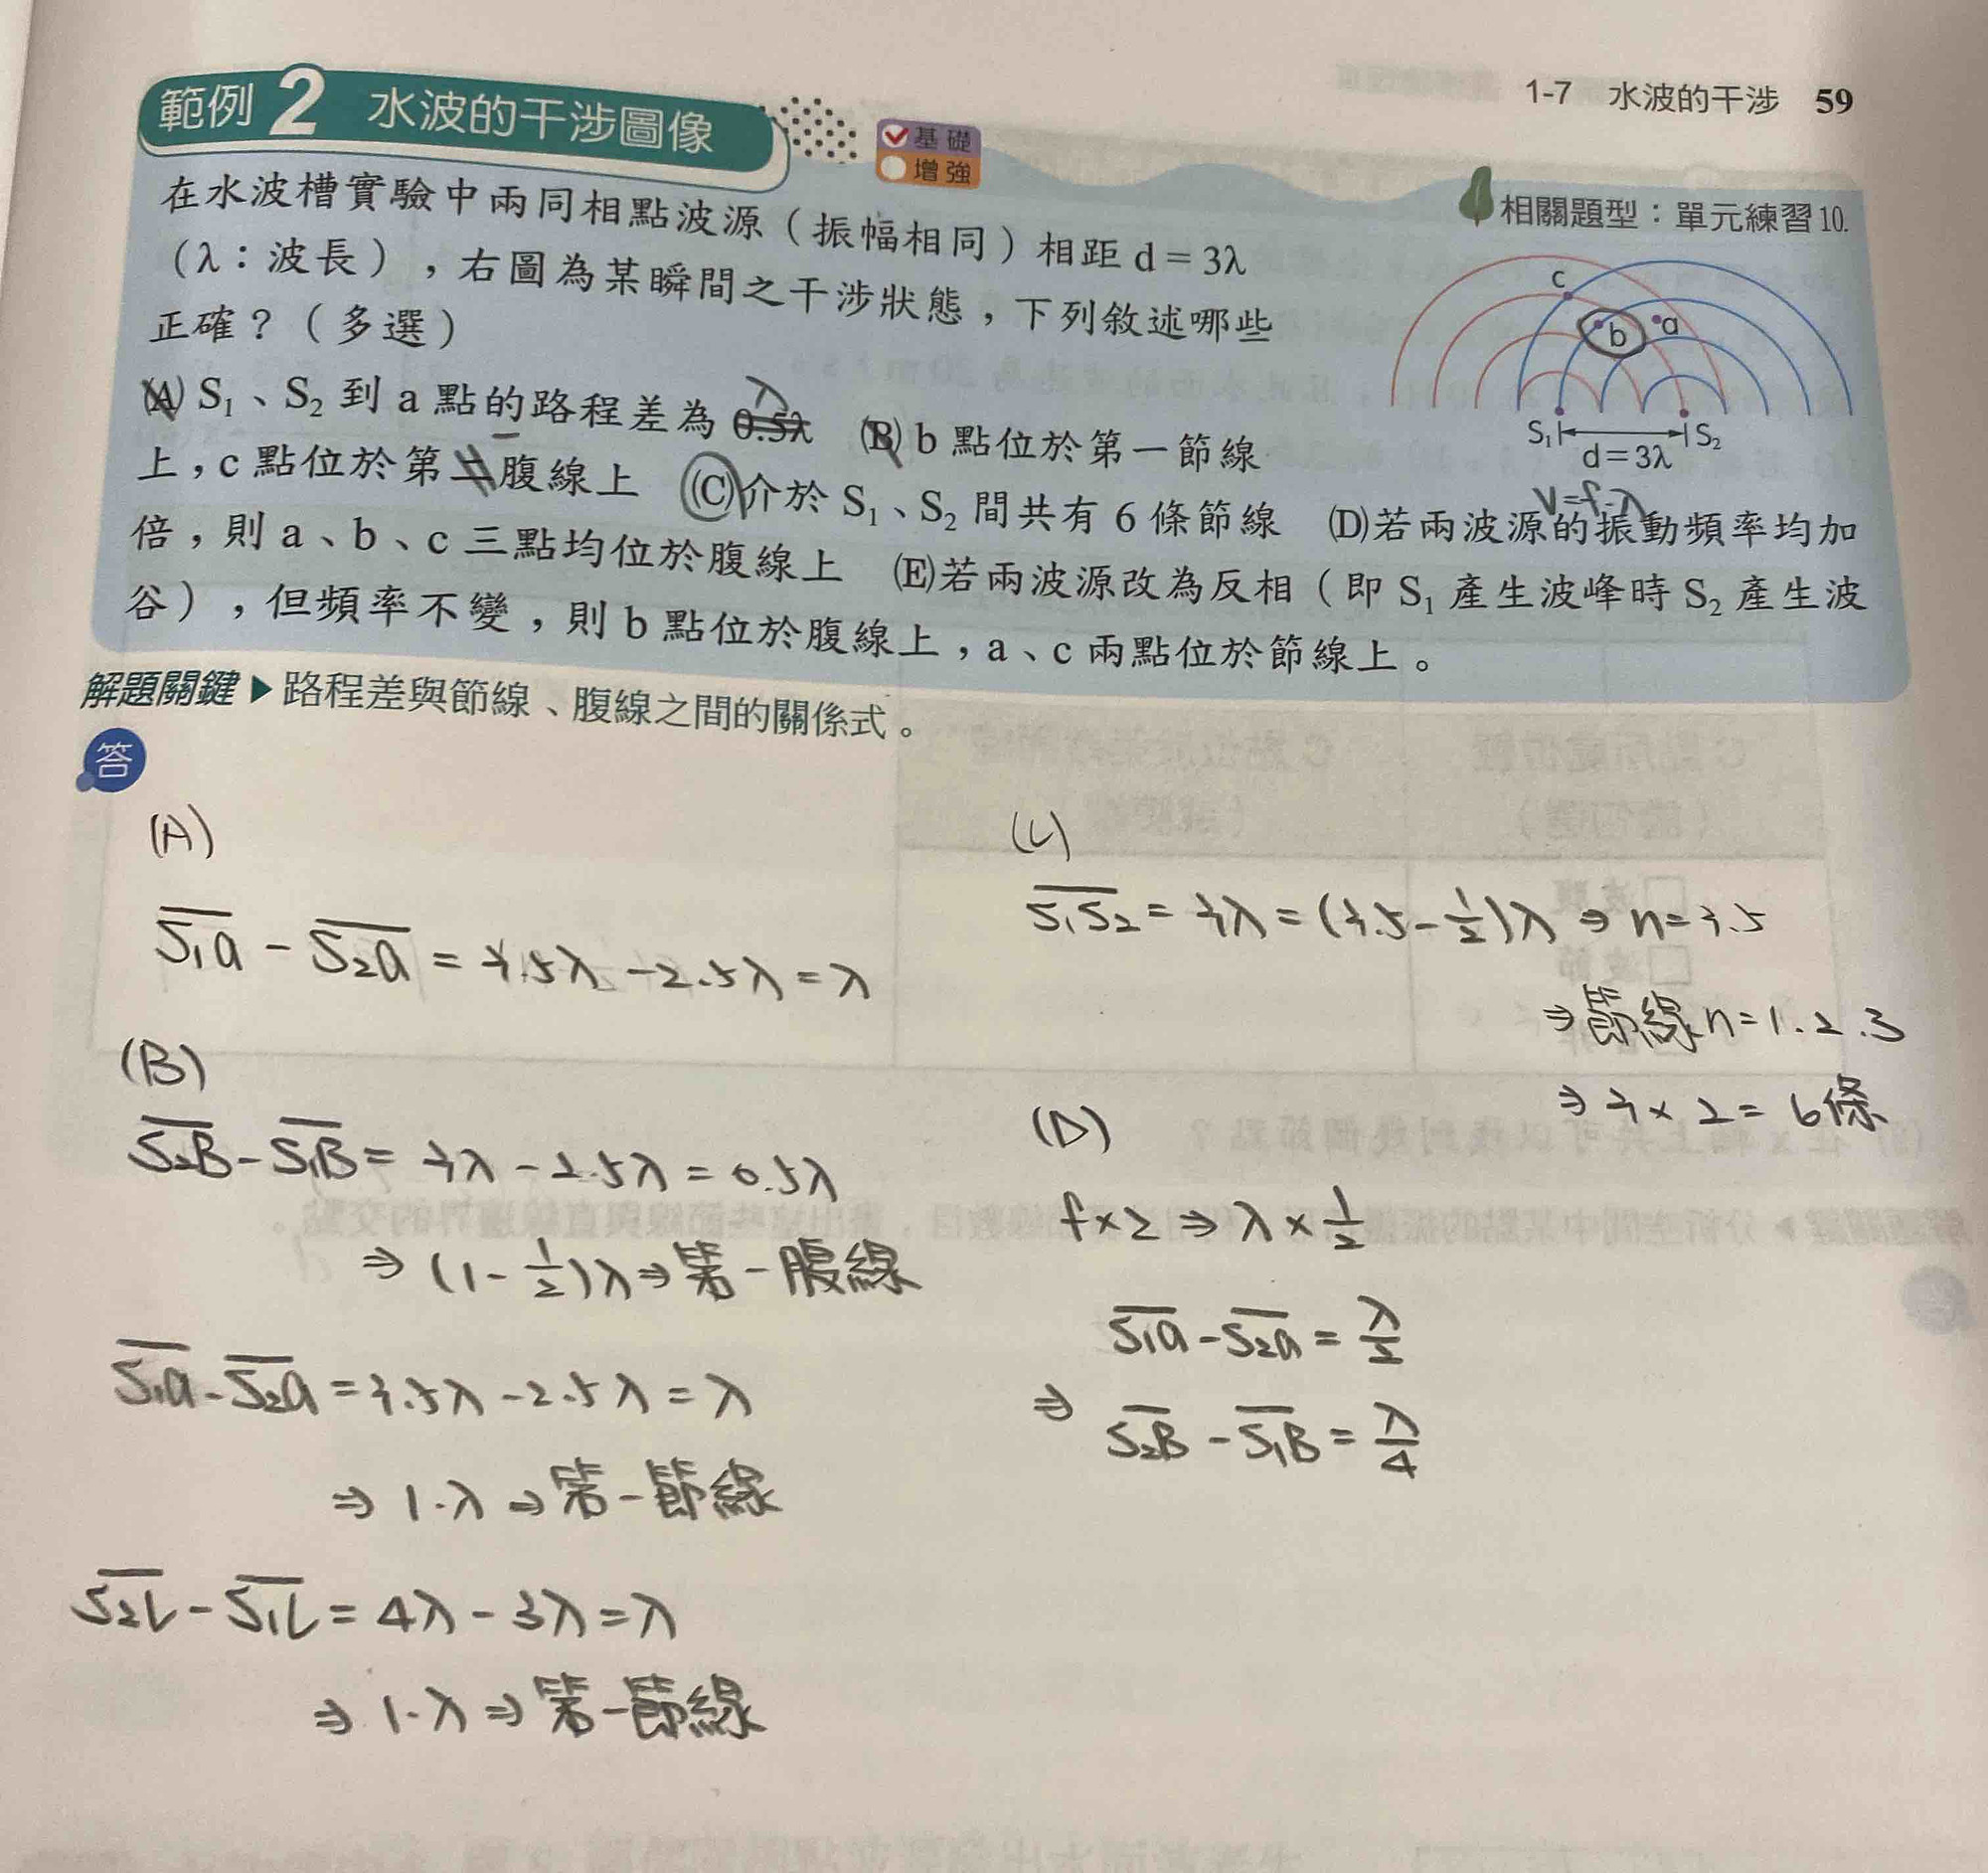 1-7 水波的干涉 59
範例 2 水波的干涉圖像
基礎
增強
相關題型：單元練習10.
在水波槽實驗中兩同相點波源（振幅相同）相距 d = 3λ
（λ：波長），右圖為某瞬間之干涉狀態，下列敘述哪些
正確？（多選）
(A) S₁、S₂ 到 a 點的路程差為 0.5λ (B) b 點位於第一節線
λ
上，c 點位於第二腹線上 (C)介於 S₁、S₂ 間共有 6 條節線 (D)若兩波源的振動頻率均加
一
v=f·λ
倍，則 a、b、c 三點均位於腹線上 (E)若兩波源改為反相（即 S₁ 產生波峰時 S₂ 產生波
谷），但頻率不變，則 b 點位於腹線上，a、c 兩點位於節線上。
c
b
a
S₁
S₂
d=3λ
解題關鍵▶路程差與節線、腹線之間的關係式。
答
(A)
S₁a - S₂a = 3.5λ - 2.5λ = λ
(B)
S₂B - S₁B = 3λ - 2.5λ = 0.5λ
⇒ (1 - 1/2)λ ⇒ 第一腹線
S₁a - S₂a = 3.5λ - 2.5λ = λ
⇒ 1·λ ⇒ 第一節線
S₂C - S₁C = 4λ - 3λ = λ
⇒ 1·λ ⇒ 第一節線
(C)
S₁S₂ = 3λ = (3.5 - 1/2)λ ⇒ n = 3.5
⇒ 節線 n = 1.2.3
⇒ 3 × 2 = 6條
(D)
f × 2 ⇒ λ × 1/2
S₁a - S₂a = λ/2
⇒ S₂B - S₁B = λ/4